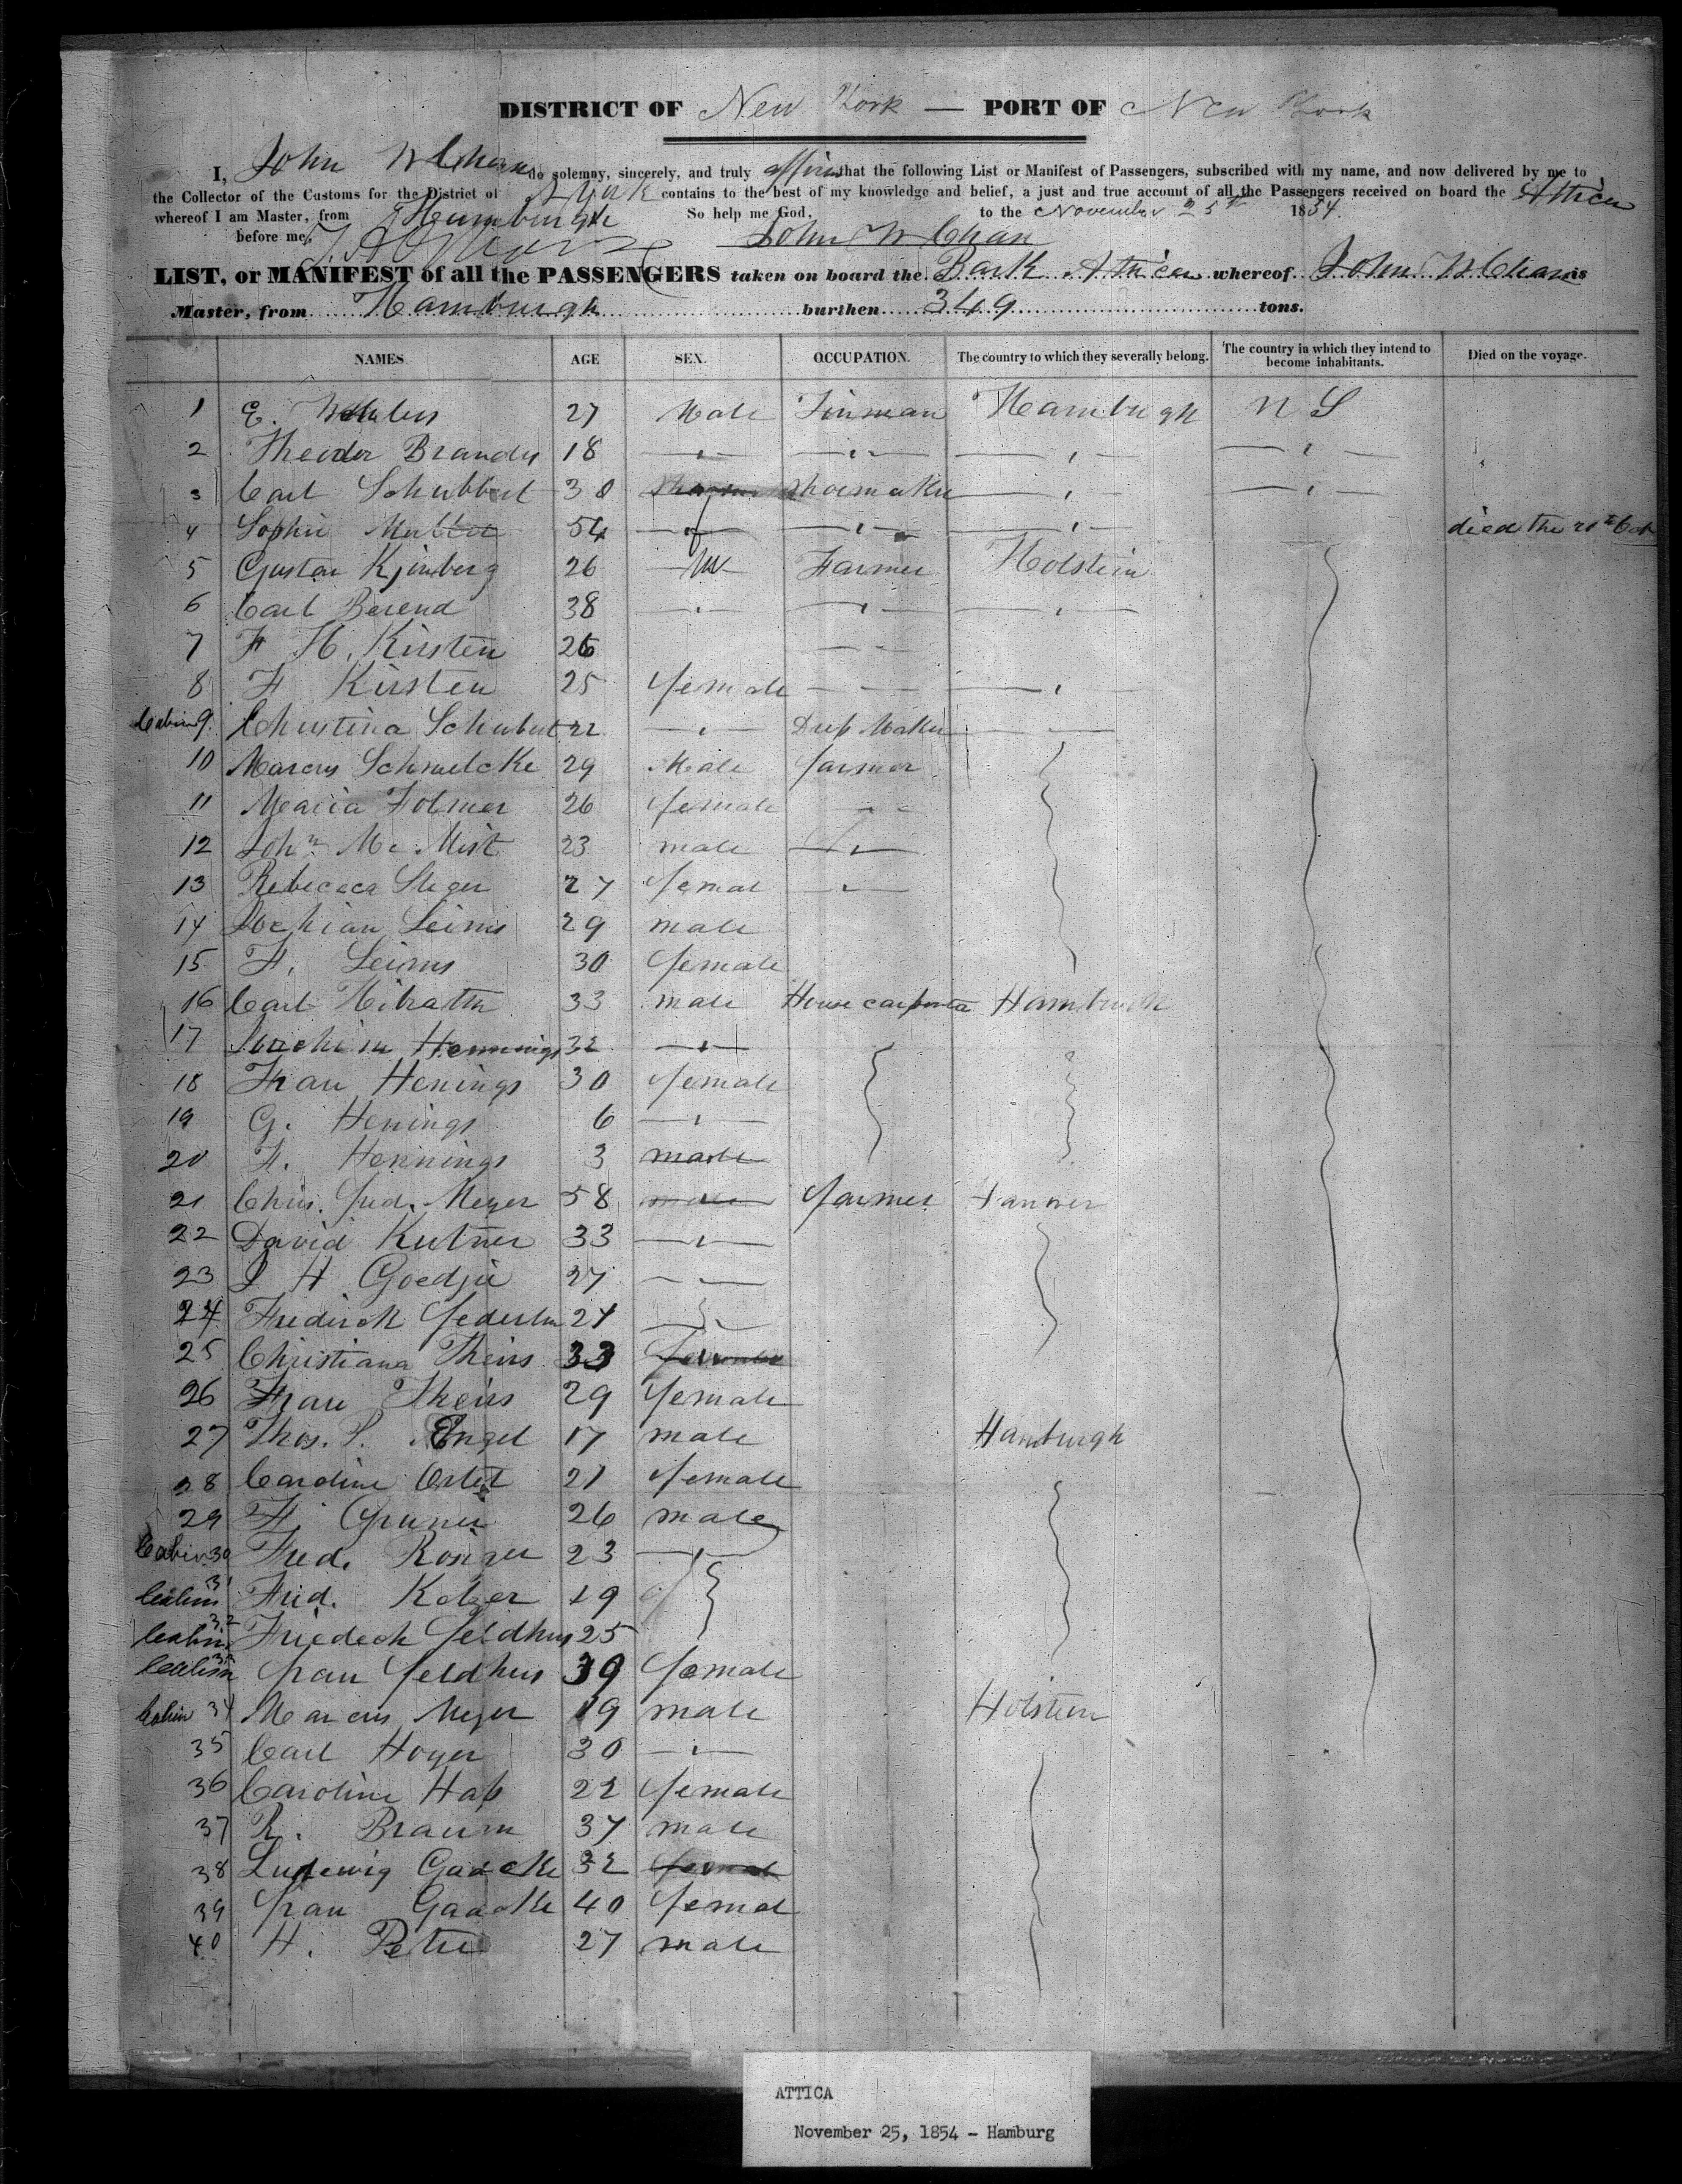 DISTRICT OF New York — PORT OF New York
I, John W Chean do solemny, sincerely, and truly affirm that the following List or Manifest of Passengers, subscribed with my name, and now delivered by me to
the Collector of the Customs for the District of N York contains to the best of my knowledge and belief, a just and true account of all the Passengers received on board the Attica
whereof I am Master, from Hamburgh So help me God, to the November 25th 1854.
before me, John W Chean
LIST, or MANIFEST of all the PASSENGERS taken on board the Bark Attica whereof John W Chean is
Master, from Hamburgh burthen 349 tons.
NAMES AGE SEX. OCCUPATION. The country to which they severally belong. The country in which they intend to become inhabitants. Died on the voyage.
1 E. 27 Male Tinman Hamburgh U S
2 Theodor Brandes 18
3 Carl Schubbert 30 Shoemaker
4 Sophie Muller 54 f died the 21st Oct
5 Gustav 26 M Farmer Holstein
6 Carl Berend 38
7 F H. Kirsten 26
8 F Kirsten 25 female
Cabin 9. Christina Schubert 22 Dress Maker
10 Marcus Schmelcke 29 Male farmer
11 Maria Folmer 26 female
12 John Mc. Mist 23 male
13 Rebecca Steger 27 femal
14 Leims 29 male
15 F. Leims 30 female
16 Carl 33 male House carpenter Hamburgh
17 Joachim Hennings 32
18 Frau Henings 30 female
19 G. Henings 6
20 F. Hennings 3 male
21 Chris. fred. Meyer 58 male farmer Hanover
22 David Kutner 33
23 J H Goedjie 27
24 Frederick 24
25 Christiana Theiss 33 female
26 Frau Theiss 29 female
27 Thos. P. Engel 17 male Hamburgh
28 Caroline 21 female
29 F. Gruner 26 male
Cabin 30 Fred. 23
Cabin 31 Frid. Kolzer 19
Cabin 32 Friedech feldhus 25
Cabin 33 frau feldhus 39 female
Cabin 34 Marcus Meyer 19 male Holstein
35 Carl Hoyer 30
36 Caroline Hap 22 female
37 R. Braum 37 male
38 Ludewig Gaacke 32 femal
39 frau Gaacke 40 femal
40 H. Petre 27 male
ATTICA
November 25, 1854 - Hamburg